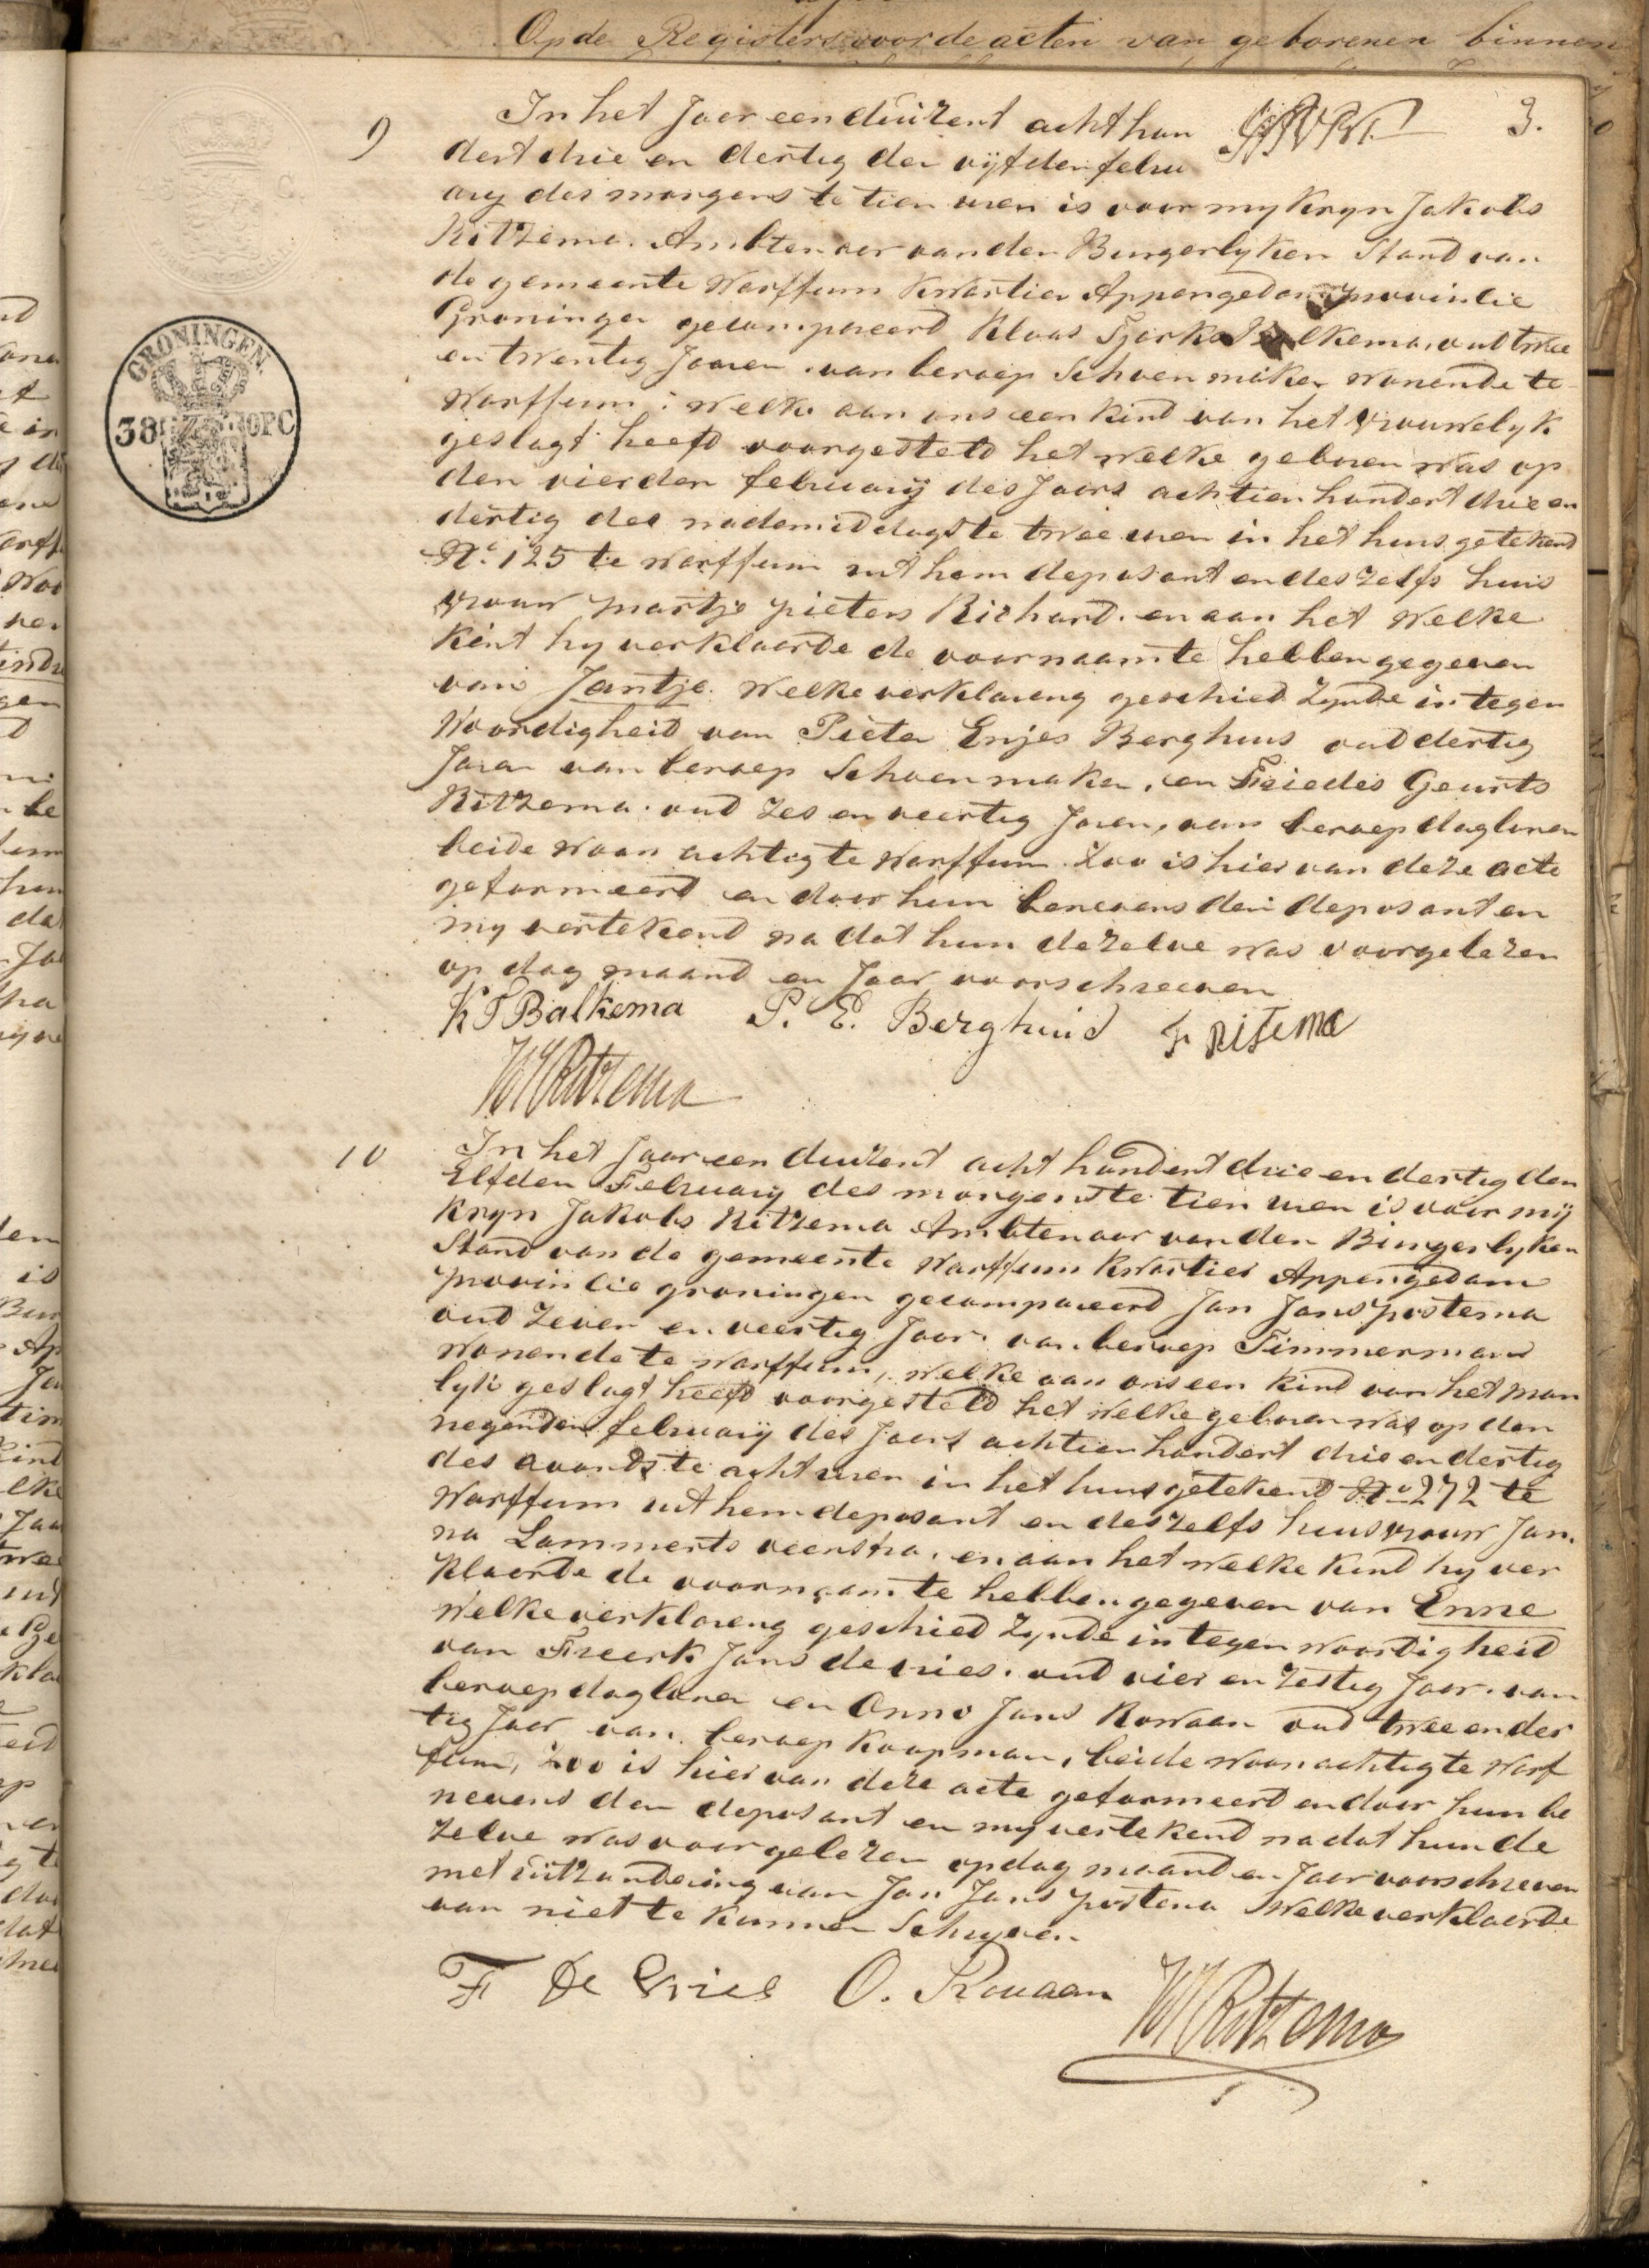 Op de Registers voor de acten van geborenen binnen
3.
GRONINGEN.
38 OPC
9
In het Jaar een duizent acht hon
dert drie en dertig den vijfden febru
arij des morgens te tien uren is voor my Kryn Jakobs
Ritzema. Ambtenaar van den Burgerlyken Stand van
de gemeente Warffum Kwartier Appengedam provintie
Groningen gecompareerd Klaas Tjarks Balkema, oud twee
en twentig Jaaren. van beroep Schoenmaker wonende te
Warffum: welke aan ons een kind van het vrouwelyk
geslagt heeft voorgesteld het welke geboren was op
den vierden february des Jaars achtien hondert drie en
dertig des nademiddags te twee uren in het huis getekend
No. 125 te Warffum uit hem deposant en deszelfs huis
vrouw Martje pieters Richard. en aan het welke
kint hy verklaarde de voornaam te hebben gegeven
van Jantje. welke verklareng geschied zynde in tegen
Woordigheid van Pieter Enjes Berghuis oud dertig
Jaren van beroep Schoenmaker, en Friedes Geurts
Ritzema. oud zes en veertig Jaren, van beroep dagloner
beide woon achtig te Warffum. Zoo is hier van deze acte
geformeerd en door hun benevens den deposant en
my vertekend na dat hun dezelve was voorgelezen
op dag maand en Jaar voorschreeven
KT Balkema P. E. Berghuis F Ritema
KJ Ritzema
10
In het Jaar een duizent acht hondert drie en dertig den
Elfden February des morgens te tien uren is voor mij
Kryn Jakobs Ritzema Ambtenaar van den Burgerlyken
Stand van de gemeente Warffum Kwartier Appengedam
provintie groningen gecompareerd Jan Jans postema
oud zeven en veertig Jaar. van beroep Timmerman
wonende te Warffum, welke aan ons een kind van het man
lyk geslagt heeft voorgesteld het welke geboren was op den
negenden februarij des Jaars achtien hondert drie en dertig
des avonds te acht uren in het huis getekend No 272 te
Warffum uit hem deposant en deszelfs huisvrouw Jan.
na Lammerts veenstra. en aan het welke kind hy ver
klaarde de voornaam te hebben gegeven van Enne
welke verklareng geschied zynde in tegen woordigheid
van Freerk Jans de vries. oud vier en zestig Jaar. van
beroep dagloner en Onno Jans Rowaan oud twee en der
tig Jaar van beroep koopman, beide woonachtig te Warf
fum, Zoo is hier van deze acte geformeerd en door hun be
nevens den deposant en my vertekend na dat hun de
zelve was voorgelezen op dag maand en Jaar voorschreven
met uitzondering van Jan Jans postema welke verklaarde
van niet te kunnen Schryven.
F De Vries O. Rouaan KJ Ritzema